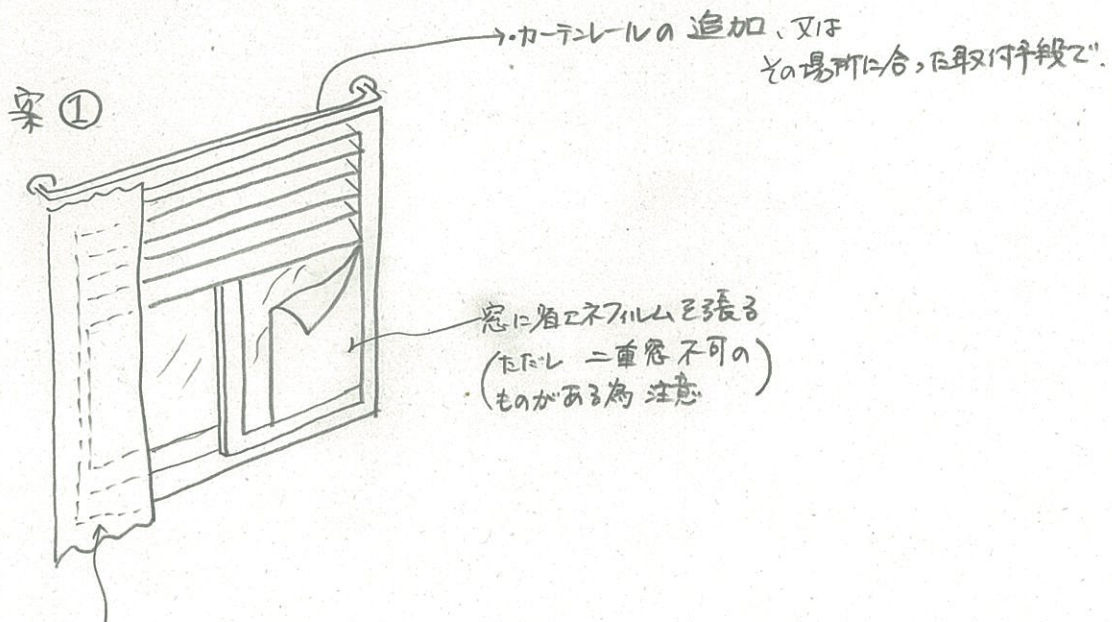 案①
・カーテンレールの 追加、又は
その場所に合った取付手段で.
窓に省エネフィルムを張る
(ただし 二重窓 不可の
ものがある為 注意)